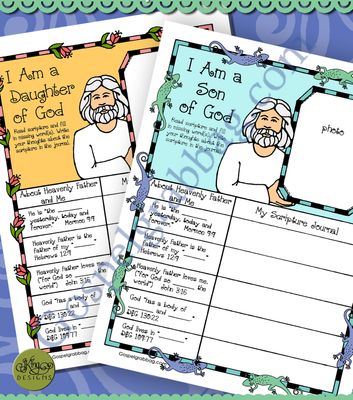 I Am a
Daughter
of God
Read scripture and fill
in missing word(s). Write
your thoughts about the
scripture in the journal.
About Heavenly Father
and Me
He is "the
yesterday, today and
forever." Mormon 9:9
Heavenly Father is the
Father of my "
Hebrews 12:9
Heavenly Father loves me.
("For God so
world") John 3:16
God "has a body of
and
D&C 130:22
God lives in "
D&C 109:77
Gospelgrabbag.com
I Am a
Son
of God
photo
Read scripture and fill
in missing word(s). Write
your thoughts about the
scripture in the journal.
About Heavenly Father
and Me
My Scripture Journal
He is "the
yesterday, today and
forever." Mormon 9:9
Heavenly Father is the
Father of my "
Hebrews 12:9
Heavenly Father loves me.
("For God so
world") John 3:16
God "has a body of
and
D&C 130:22
God lives in "
D&C 109:77
Gospelgrabbag.com
DESIGNS